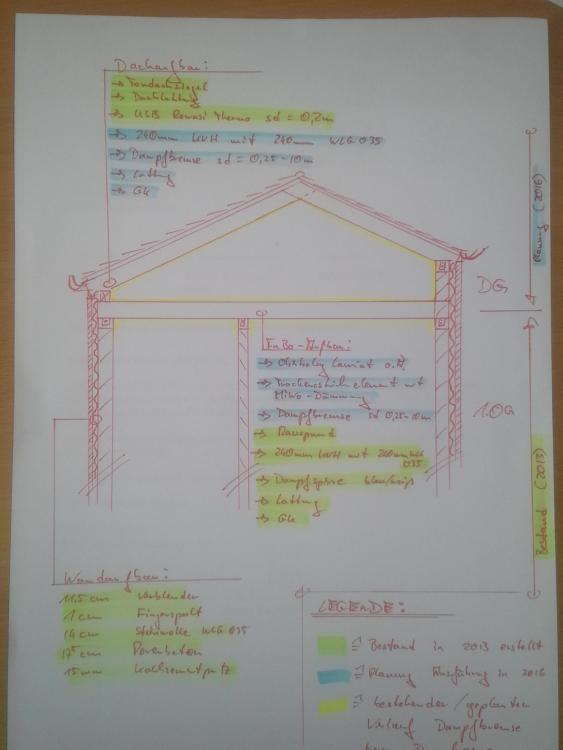 Dachaufbau:
→ Tondachziegel
→ Dachlattung
→ USB Reno Thermo sd = 0,2m
→ 240mm KVH mit 240mm WLG 035
→ Dampfbremse sd = 0,25-10m
→ Lattung
→ GK
Planung (2016)
DG
FuBo-Aufbau:
→ Teppich, Laminat o.ä.
→ Trockenestrichelement mit
MiWo-Dämmung
→ Dampfbremse sd 0,25-10m
→ Rauspund
→ 240mm KVH mit 240mm WLG
035
→ Dampfsperre blau/weiß
→ Lattung
→ GK
1.OG
Bestand (2013)
Wandaufbau:
11,5 cm Verblender
1 cm Fingerspalt
14 cm Steinwolle WLG 035
17⁵ cm Porenbeton
15mm Kalkzementputz
LEGENDE:
≙ Bestand in 2013 erstellt
≙ Planung Ausführung in 2016
≙ bestehender/geplanter
Verlauf Dampfbremse